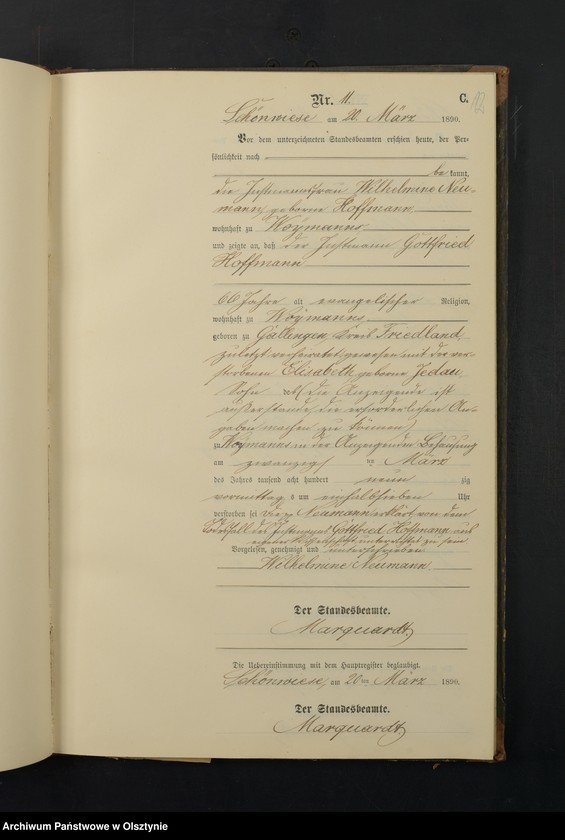 Nr. 11. C. 12
Schönwiese am 20. März 1890.
Vor dem unterzeichneten Standesbeamten erschien heute, der Per-
sönlichkeit nach
be kannt,
die Instmannsfrau Wilhelmine Neu-
mann, geborne Hoffmann
wohnhaft zu Woymanns
und zeigte an, daß der Instmann Gottfried
Hoffmann
66 Jahre alt evangelischer Religion,
wohnhaft zu Woymanns
geboren zu Gallingen, Kreis Friedland,
zuletzt verheiratet gewesen mit der ver-
storbenen Elisabeth geborne Jedau
Sohn (die Anzeigende ist
außerstande, die erforderlichen An-
gaben machen zu können)
zu Woymanns in der Anzeigenden Behausung
am zwanzig ten März
des Jahres tausend acht hundert neun zig
vormittag s um einhalbsieben Uhr
verstorben sei Die p Neumann erklärt von dem
Todesfall des Instmann Gottfried Hoffmann aus
eigener Wissenschaft unterrichtet zu sein
Vorgelesen, genehmigt und unterschrieben
Wilhelmine Neumann
Der Standesbeamte.
Marquardt
Die Uebereinstimmung mit dem Hauptregister beglaubigt.
Schönwiese, am 20 ten März 1890.
Der Standesbeamte.
Marquardt
Archiwum Państwowe w Olsztynie